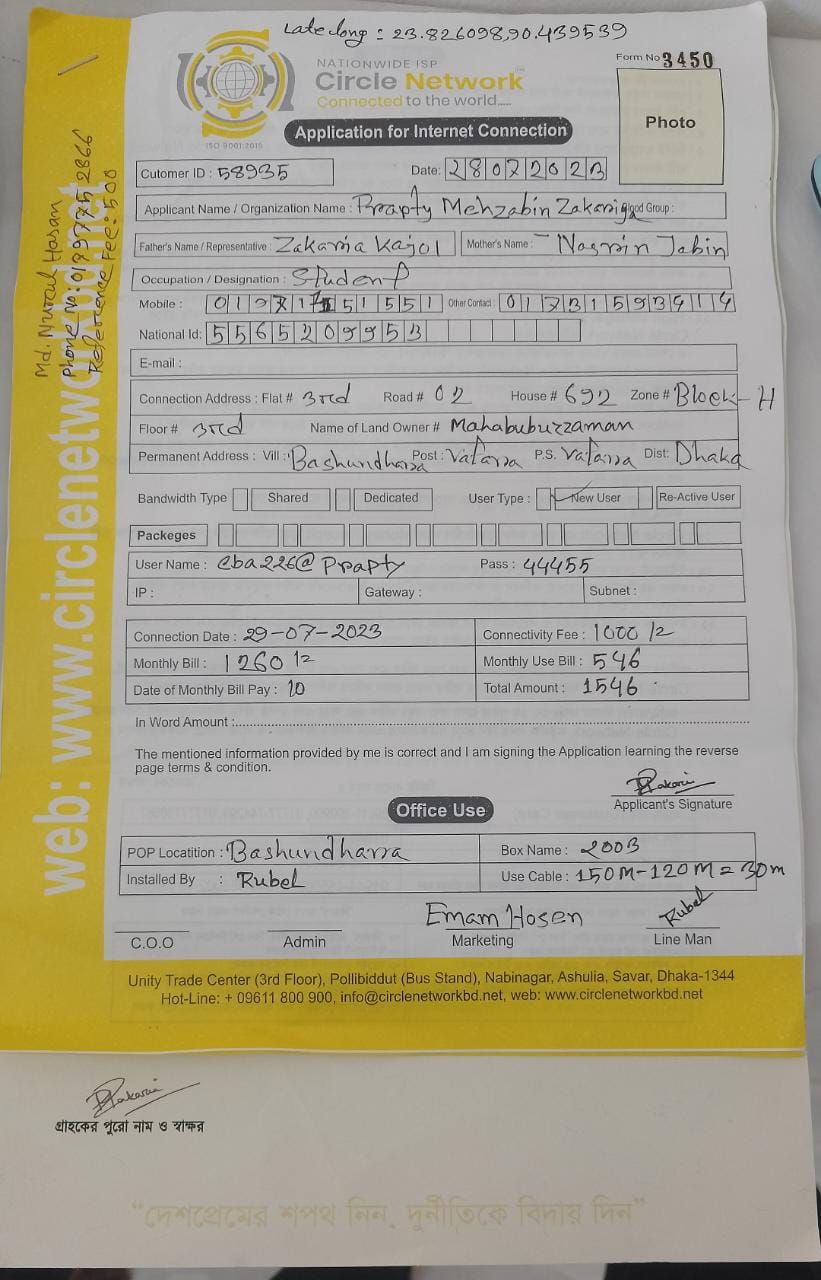 Late long : 23.826098,90.439539
NATIONWIDE ISP
Circle Network
Connected to the world.....
ISO 9001:2015
Form No 3450
Photo
Application for Internet Connection
Cutomer ID : 58935 Date: 28072023
Applicant Name / Organization Name : Prapty Mehzabin Zakaria Blood Group :
Father's Name / Representative : Zakaria Kajol Mother's Name : Nasrin Jabin
Occupation / Designation : Student
Mobile : Other Contact : 01731593414
National Id: 5565209953
E-mail :
Connection Address : Flat # 3rd Road # 02 House # 692 Zone # Block-H
Floor # 3rd Name of Land Owner # Mahabubuzzaman
Permanent Address : Vill : Bashundhara Post : Vatara P.S. Vatara Dist: Dhaka
Bandwidth Type Shared Dedicated User Type : New User Re-Active User
Packeges
User Name : cba226@Prapty Pass : 44455
IP : Gateway : Subnet :
Connection Date : 29-07-2023 Connectivity Fee : 1000/=
Monthly Bill : 1260/= Monthly Use Bill : 546
Date of Monthly Bill Pay : 10 Total Amount : 1546
In Word Amount :
The mentioned information provided by me is correct and I am signing the Application learning the reverse
page terms & condition.
Applicant's Signature
Office Use
POP Locatition : Bashundhara Box Name : 2003
Installed By : Rubel Use Cable : 150M-120M = 30m
Emam Hosen Rubel
C.O.O Admin Marketing Line Man
Unity Trade Center (3rd Floor), Pollibiddut (Bus Stand), Nabinagar, Ashulia, Savar, Dhaka-1344
Hot-Line: + 09611 800 900, info@circlenetworkbd.net, web: www.circlenetworkbd.net
web: www.circlenetworkbd.net
Md. Nurul Hasan
Phone No: 2866
Reference Fee: 500
গ্রাহকের পুরো নাম ও স্বাক্ষর
“দেশপ্রেমের শপথ নিন, দুর্নীতিকে বিদায় দিন”